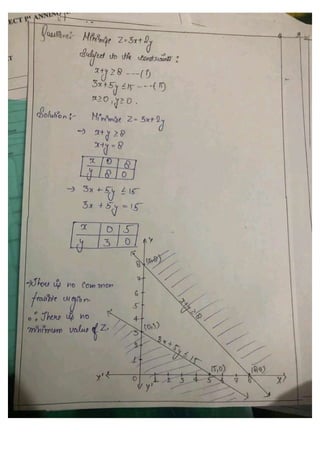 ECT PLANNING
Question:- Minimise Z=3x+2y
Subject to the constraints:
x+y≥8 ---(I)
3x+5y≤15 ---(II)
x≥0, y≥0.
Solution:- Minimise Z = 3x+2y
→ x+y ≥8
x+y=8
x 0 8
y 8 0
→ 3x+5y ≤15
3x+5y=15
x 0 5
y 3 0
→There is no common
feasible region
∴ There is no
minimum value of Z.
Y
(0,8)
8
7
6
5
4
3
2
1
x+y≥8
(0,3)
3x+5y≤15
(5,0)
(8,0)
X' 0 1 2 3 4 5 6 7 8 X
Y'